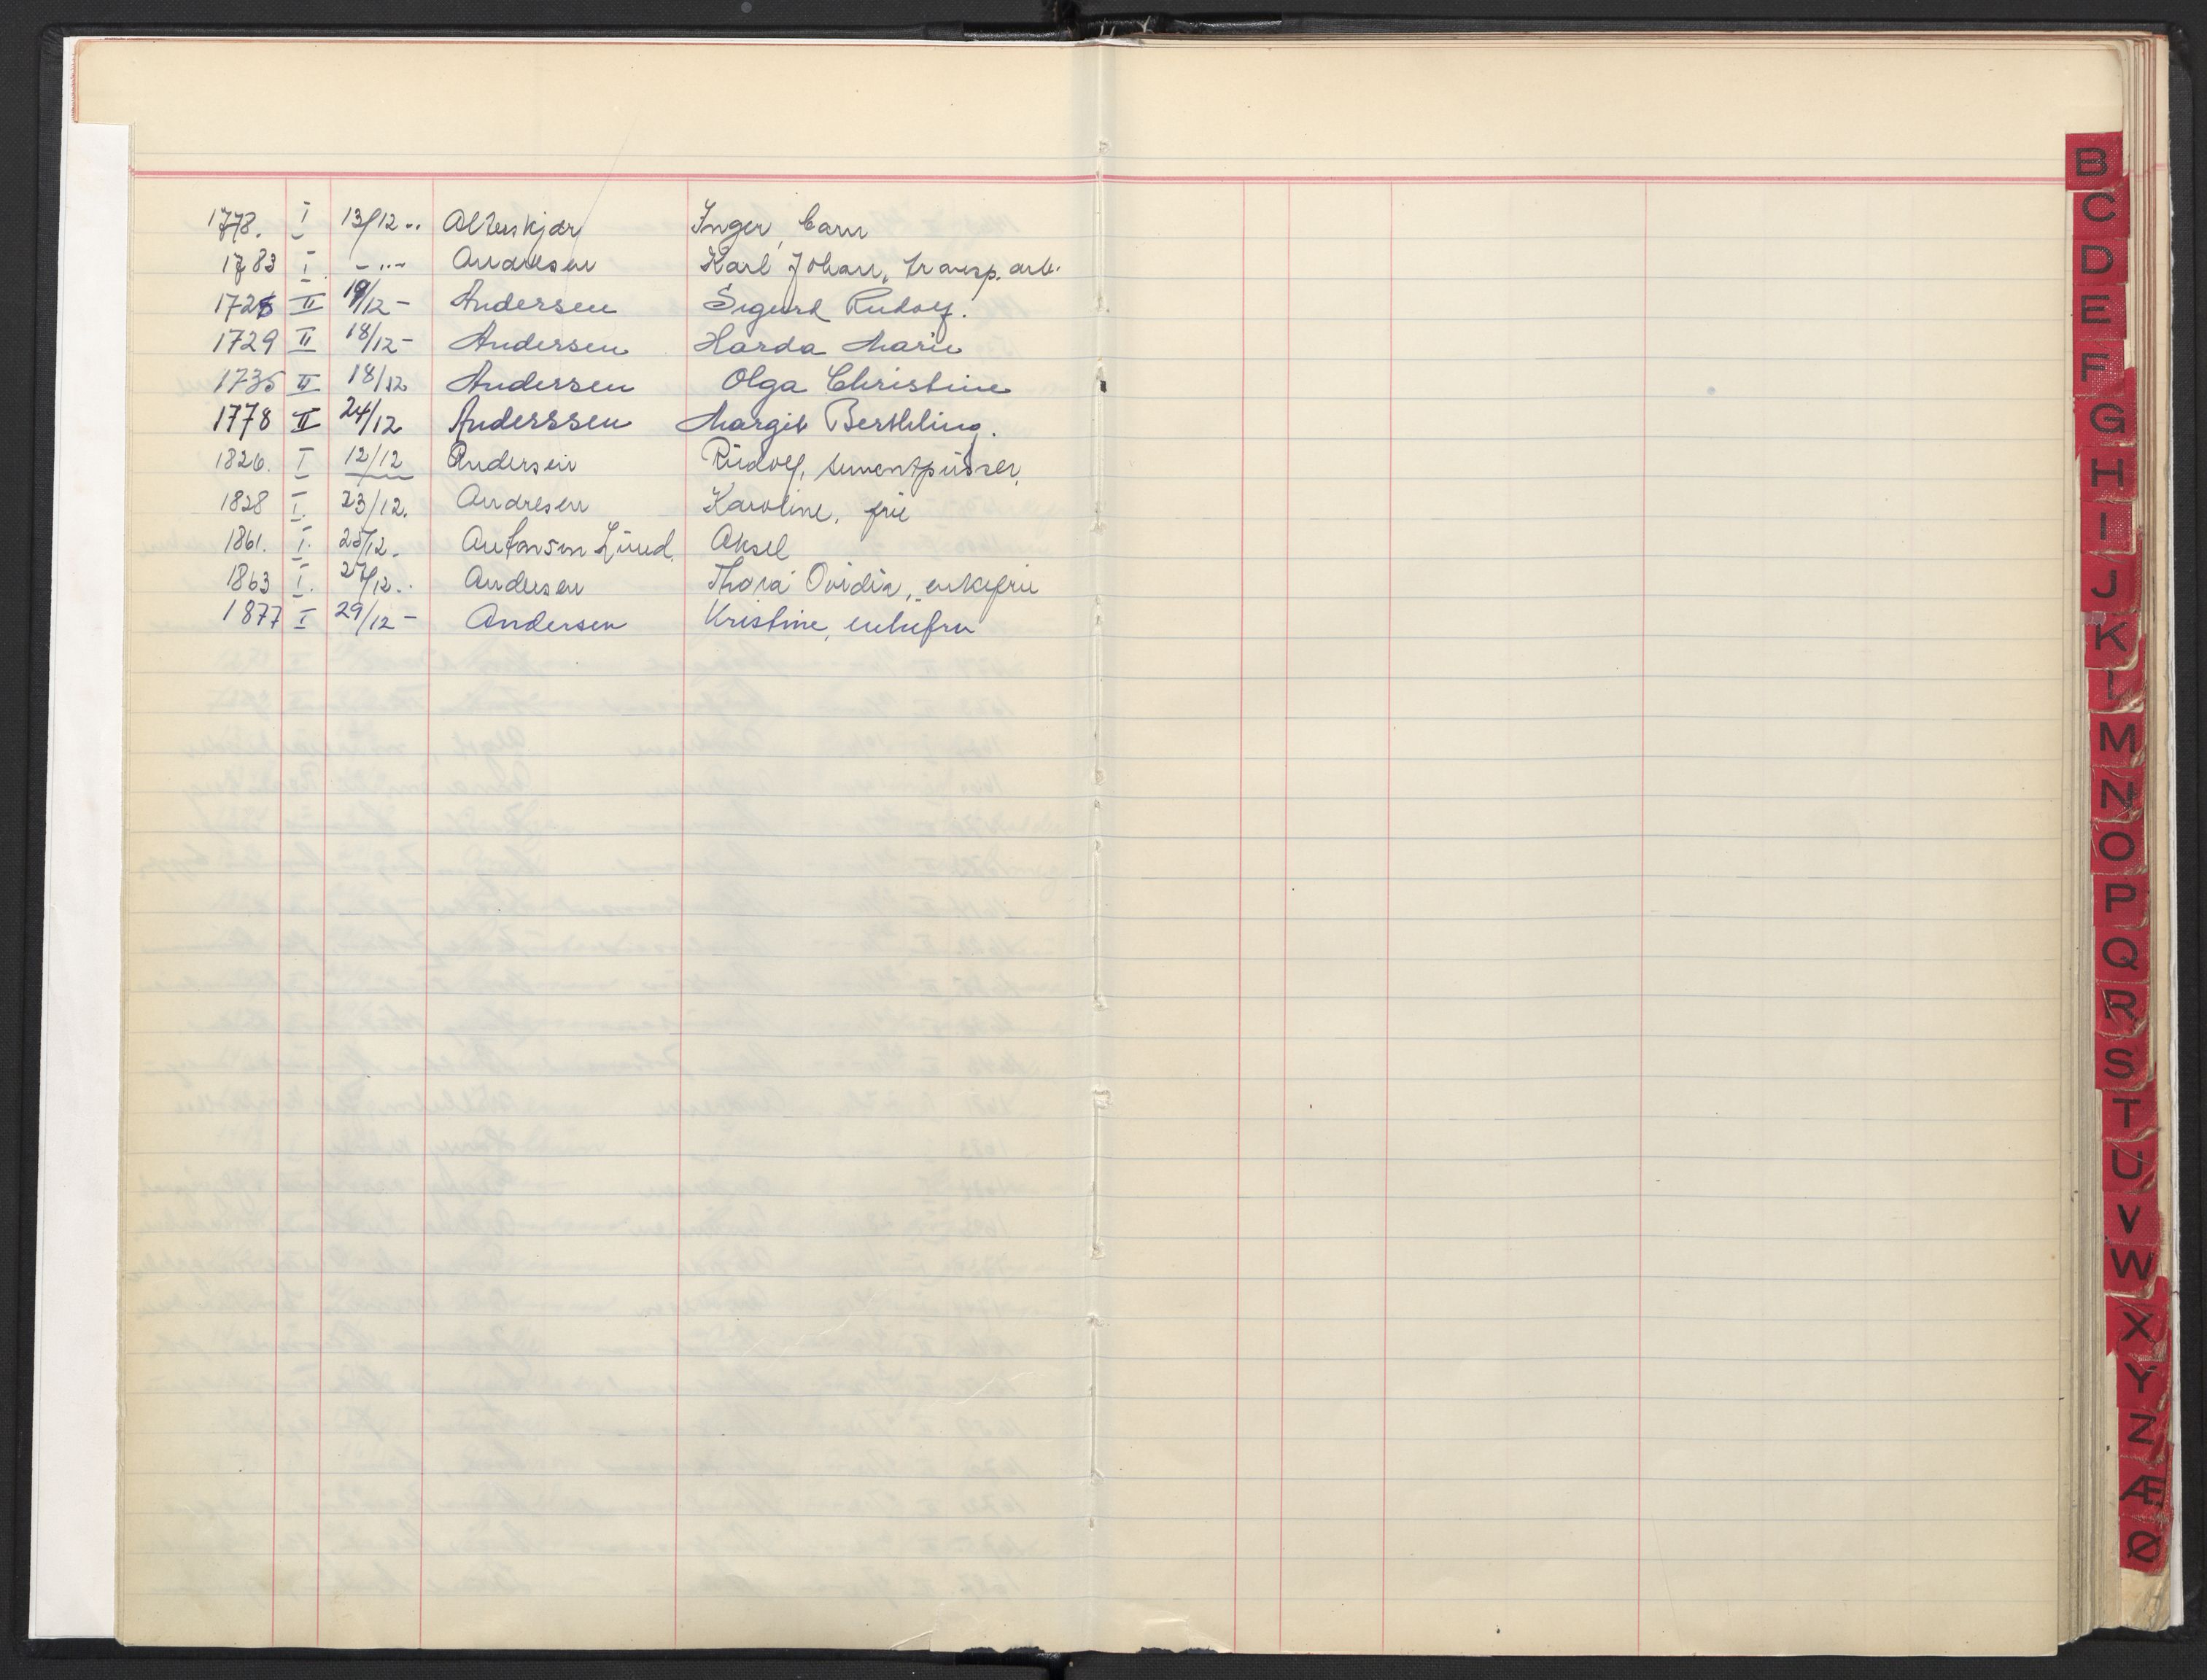 1778. I 13/12 .. Alterskjær Inger, barn
1783 I - „ - Andresen Karl Johan, transp. arb.
1726 II 19/12 - Andersen Sigurd Rudolf.
1729 II 18/12 - Andersen Harda Marie
1735 II 18/12 Andersen Olga Christine
1778 II 24/12 Anderssen Margit Berthling.
1826. I 12/12 Andersen Rudolf, sementpusser,
1828 I. 23/12. Andresen Karoline, frue
1861. I. 25/12. Antonsen Lund. Aksel
1863 I. 27/12.. Andersen Thora Ovidia, enkefrue
1877 I 29/12 - Andersen Kristine, enkefru
B
C
D
E
F
G
H
I
J
K
L
M
N
O
P
Q
R
S
T
U
V
W
X
Y
Z
Æ
Ø